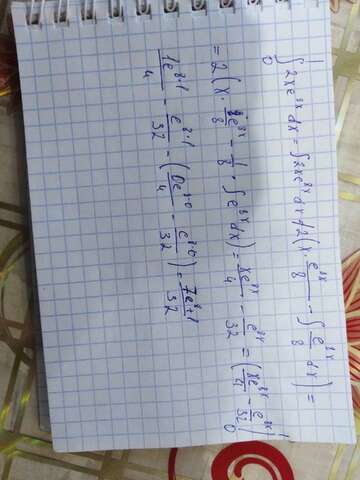 ∫₀¹ 2xe^{8x} dx = ∫ 2xe^{8x} dx = 2(x · e^{8x}/8 - ∫ e^{8x}/8 dx) =
= 2(x · e^{8x}/8 - 1/8 · ∫ e^{8x} dx) = xe^{8x}/4 - e^{8x}/32 = (xe^{8x}/4 - e^{8x}/32)|₀¹
1e^{8·1}/4 - e^{8·1}/32 - (0e^{8·0}/4 - e^{8·0}/32) = 7e^{8}+1/32